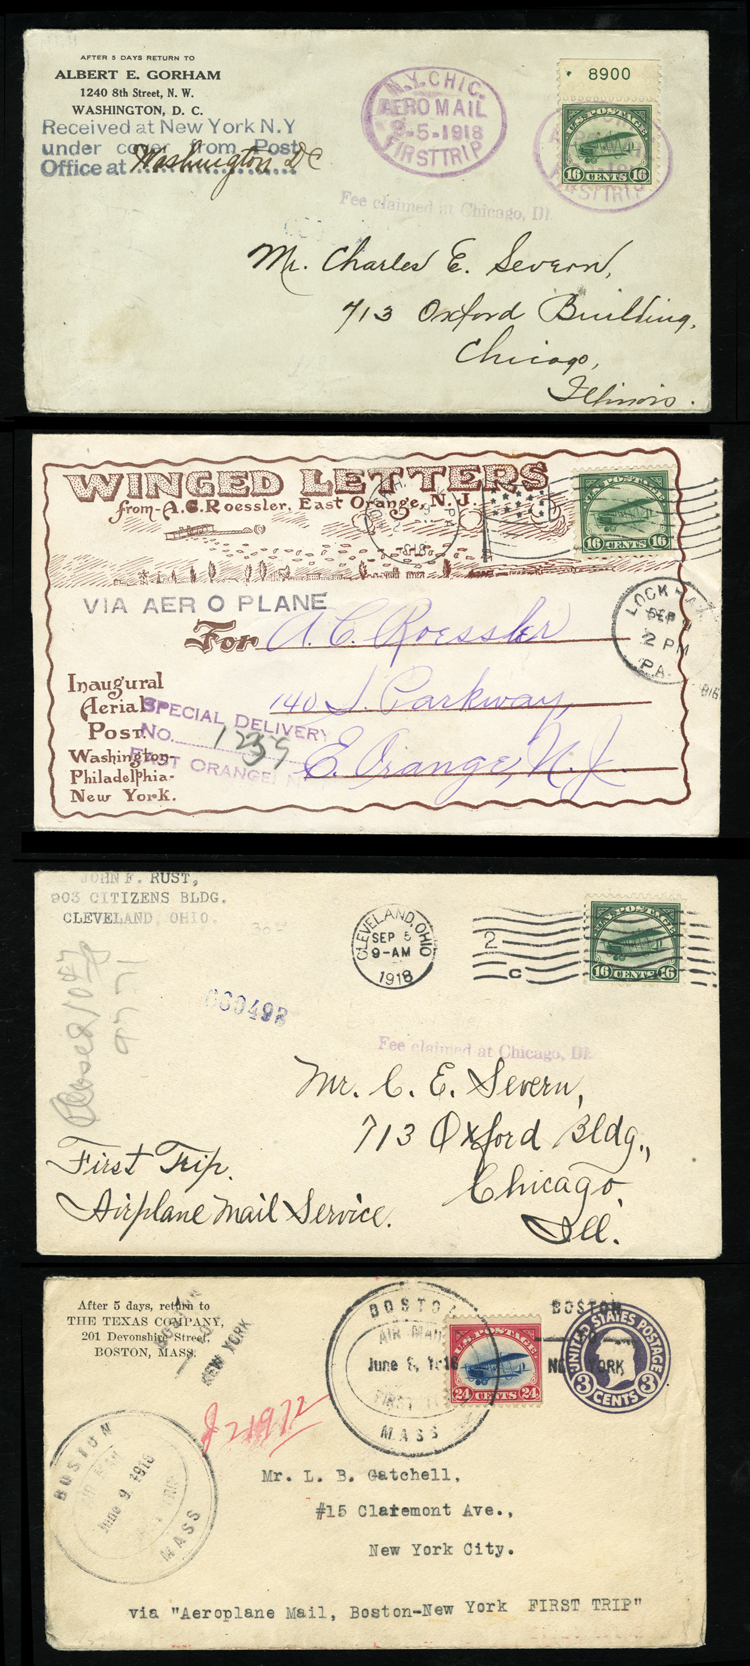 AFTER 5 DAYS RETURN TO
ALBERT E. GORHAM
1240 8th Street, N. W.
WASHINGTON, D. C.
Received at New York N.Y
under cover from Post
Office at Washington DC
N.Y. CHIC.
AERO MAIL
9-5-1918
FIRST TRIP
8900
U.S. POSTAGE
16 CENTS 16
FIRST TRIP
Fee claimed at Chicago, Ill.
Mr. Charles E. Severn,
713 Oxford Building,
Chicago,
Illinois.
WINGED LETTERS
from A.C. Roessler, East Orange, N. J.
U.S. POSTAGE
16 CENTS 16
VIA AEROPLANE
LOCK HAV
SEP
2 PM
PA.
For A. C. Roessler
140 S. Parkway,
E. Orange, N. J.
Inaugural
Aerial
Post.
Washington-
Philadelphia-
New York.
SPECIAL DELIVERY
No. 1239
EAST ORANGE, N.
JOHN F. RUST,
903 CITIZENS BLDG.
CLEVELAND, OHIO.
CLEVELAND, OHIO
SEP 5
9-AM
1918
2
C
U.S. POSTAGE
16 CENTS 16
Fee claimed at Chicago, Ill.
Mr. C. E. Severn,
713 Oxford Bldg.,
Chicago,
Ill.
First Trip.
Airplane Mail Service.
After 5 days, return to
THE TEXAS COMPANY,
201 Devonshire Street,
BOSTON, MASS.
NEW YORK
BOSTON
AIR MAIL
FIRST
MASS
U.S. POSTAGE
24 CENTS 24
BOSTON
TO
NEW YORK
UNITED STATES POSTAGE
3 CENTS 3
BOSTON
June 9, 1918
MASS
Mr. L. B. Gatchell,
#15 Claremont Ave.,
New York City.
via "Aeroplane Mail, Boston-New York FIRST TRIP"